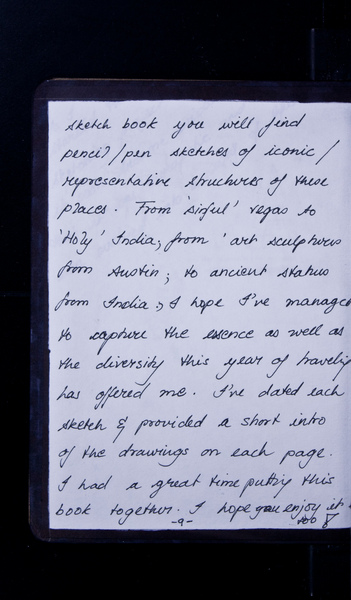 sketch book you will find
pencil/pen sketches of iconic/
representative structures of these
places. From 'sinful' vegas to
'Holy' India, from 'art sculptures
from Austin; to ancient statues
from India; I hope I've managed
to capture the essence as well as
the diversity this year of traveling
has offered me. I've dated each
sketch & provided a short intro
of the drawings on each page.
I had a great time putting this
book together. I hope you enjoy it
too!
-a-